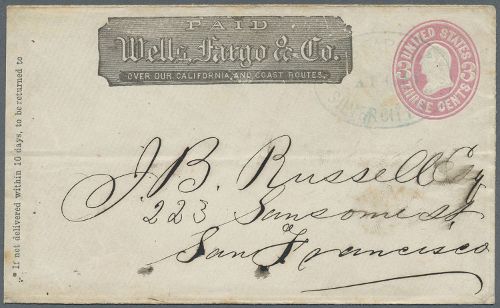 PAID
Wells, Fargo & Co.
OVER OUR CALIFORNIA, AND COAST ROUTES.
UNITED STATES
THREE CENTS
CITY
* If not delivered within 10 days, to be returned to
J. B. Russell & Co
223 Sansome st
San Francisco